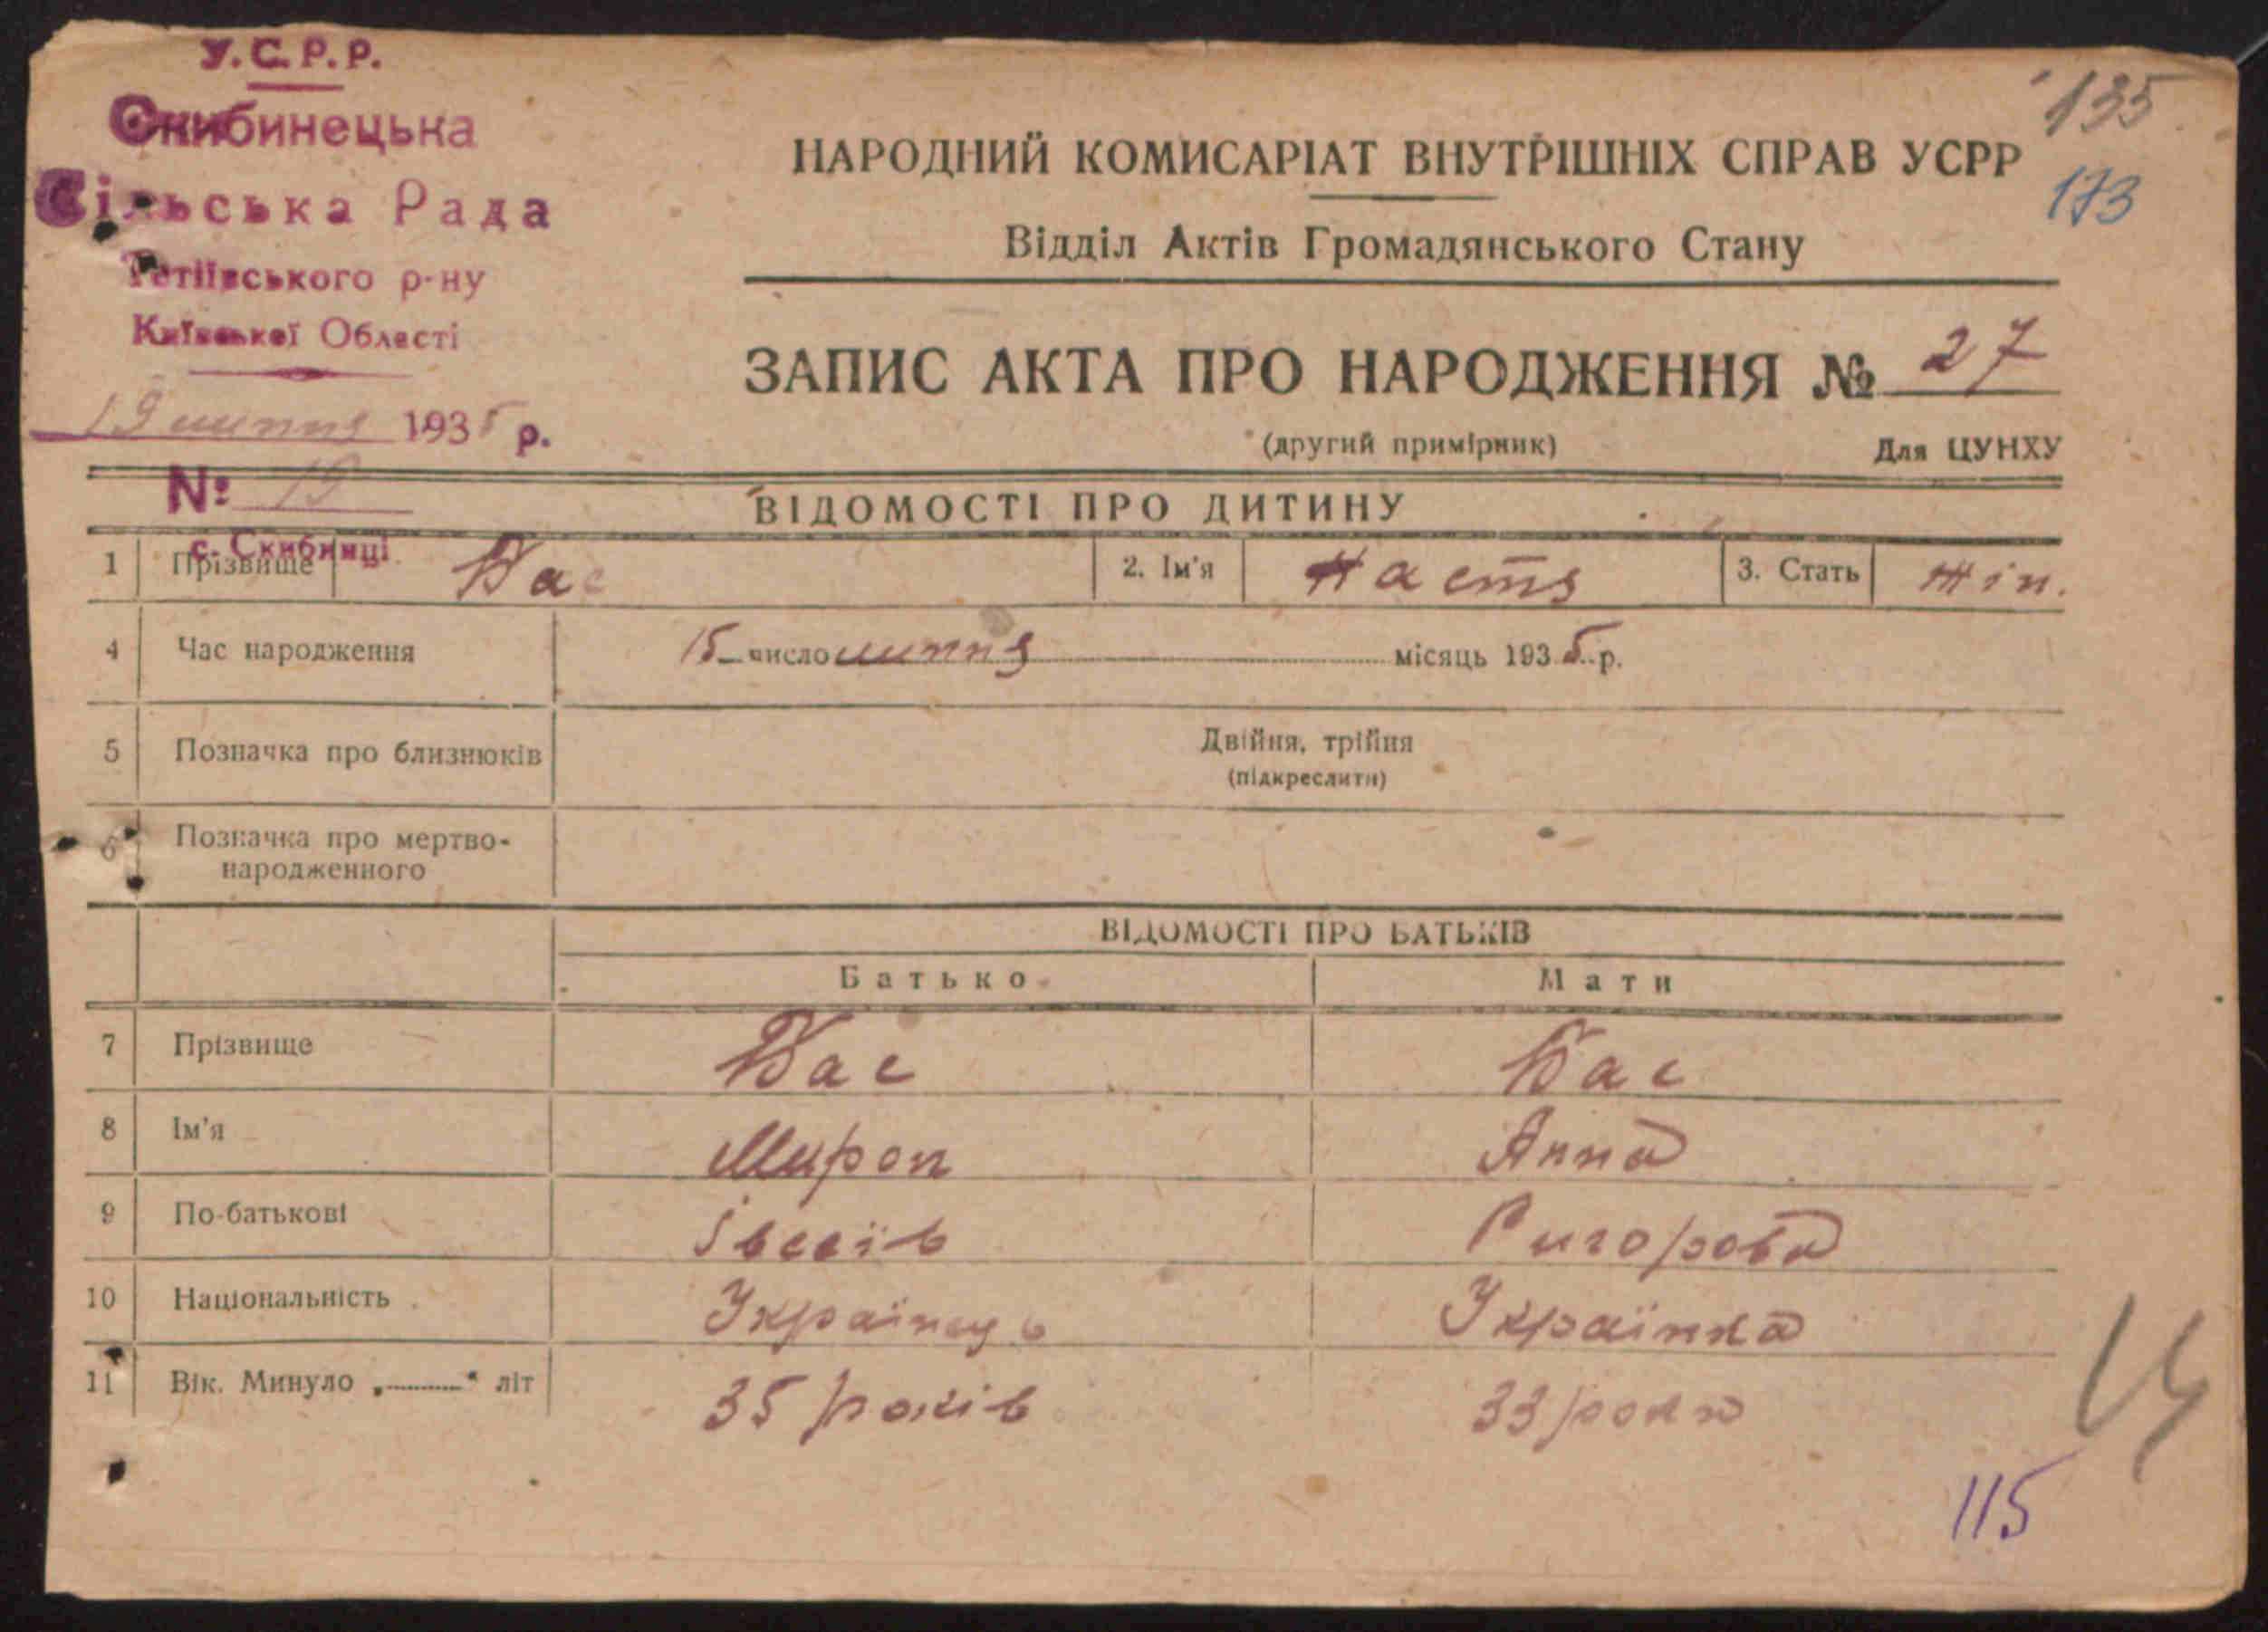 У.С.Р.Р.
Скибинецька
Сільська Рада
Тетіївського р-ну
Київської Області
19 липня 1935 р.
№ 19
с. Скибинці
135
173
НАРОДНИЙ КОМИСАРІАТ ВНУТРІШНІХ СПРАВ УСРР
Відділ Актів Громадянського Стану
ЗАПИС АКТА ПРО НАРОДЖЕННЯ № 27
(другий примірник) Для ЦУНХУ
ВІДОМОСТІ ПРО ДИТИНУ
1 Прізвище Бас 2. Ім'я Настя 3. Стать жін.
4 Час народження 15 число липня місяць 1935 р.
5 Позначка про близнюків Двійня, трійня
(підкреслити)
6 Позначка про мертво-
народженного
ВІДОМОСТІ ПРО БАТЬКІВ
Батько Мати
7 Прізвище Бас Бас
8 Ім'я Мирон Анна
9 По-батькові Івсеїв Ригорова
10 Національність Українець Українка
11 Вік. Минуло „ “ літ 35 років 33 роки
115